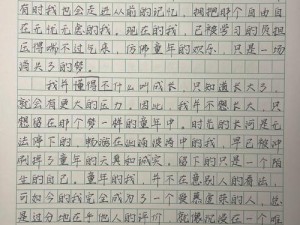 有时我也会走进从前的记忆，拥抱那个自由自
在无忧无虑的我。现在的我，已被学习的负担
压得喘不过气来，仿佛童年的欢乐，只是一场
消失了的梦。
我并懂得不什么叫成长，只知道长大了，
就会有更大的压力。因此，我并不想长大，只
想留在那个梦一样的童年中。时光的长河是无
法停下的，畅游在此汹涌波涛中的我，早已被冲
刷掉了童年的天真和诚实，留下的只是一个陌
生的自己。童年的我，并不在意别人的看法，
可如今的我完成为了一个爱慕虚荣的人，总
是过分地在乎他人的评价，就像沉浸在一个唯